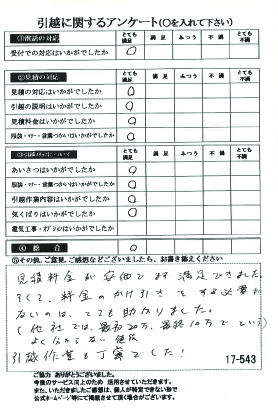 引越に関するアンケート(○を入れて下さい)
①電話の対応 とても満足 満足 ふつう 不満 とても不満
受付での対応はいかがでしたか ○
②見積の対応 とても満足 満足 ふつう 不満 とても不満
見積の対応はいかがでしたか ○
引越の説明はいかがでしたか ○
見積料金はいかがでしたか ○
服装・マナー・言葉つかいはいかがでしたか ○
とても満足 満足 ふつう 不満 とても不満
あいさつはいかがでしたか ○
服装・マナー・言葉つかいはいかがでしたか ○
引越作業内容はいかがでしたか ○
気くばりはいかがでしたか ○
電気工事・オプションはいかがでしたか
④ 総合 ○
⑤その他、ご意見、ご感想などございましたら、お書き添えください
見積料金が安価でまず満足できました。
そして、料金のかけ引きをする必要が
ないのは、とても助かりました。
(他社では、最初20万、最終10万で という
よくわからない値段
引越作業も丁寧でした!
17-543
ご協力 ありがとうございました。
今後のサービス向上のため 活用させていただきます。
また、いただきましたご感想は、個人が特定できない形で
公式ホームページ等にて掲載させて頂く場合がございます。